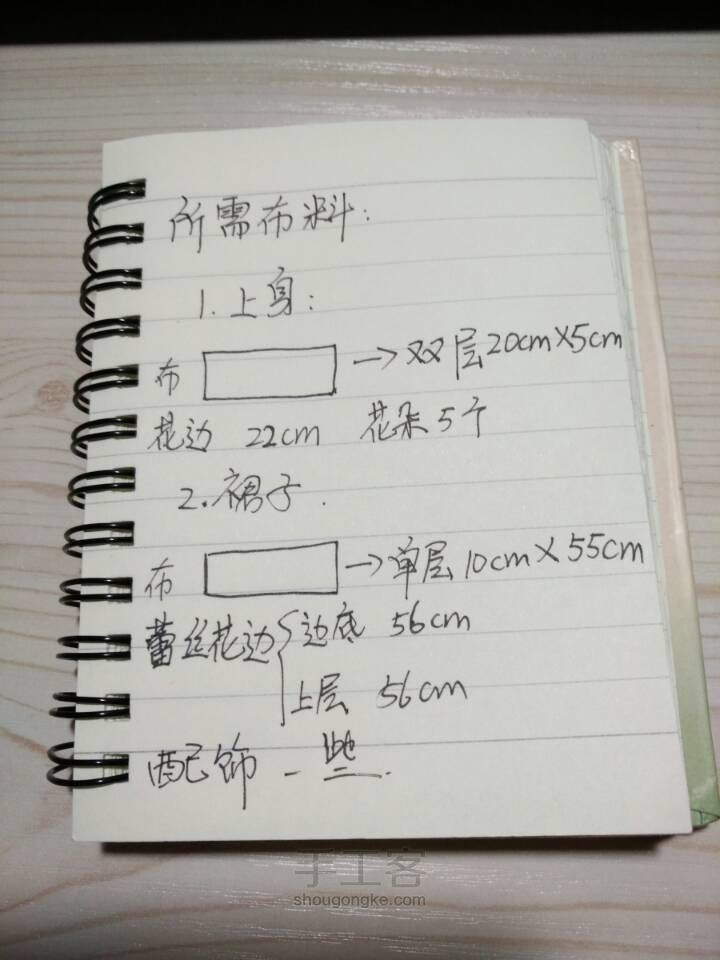 所需布料:
1.上身:
布 →双层20cm×5cm
花边 22cm 花朵5个
2.裙子.
布 →单层10cm×55cm
蕾丝花边{边底 56cm
上层 56cm
配饰一些.
手工客
shougongke.com